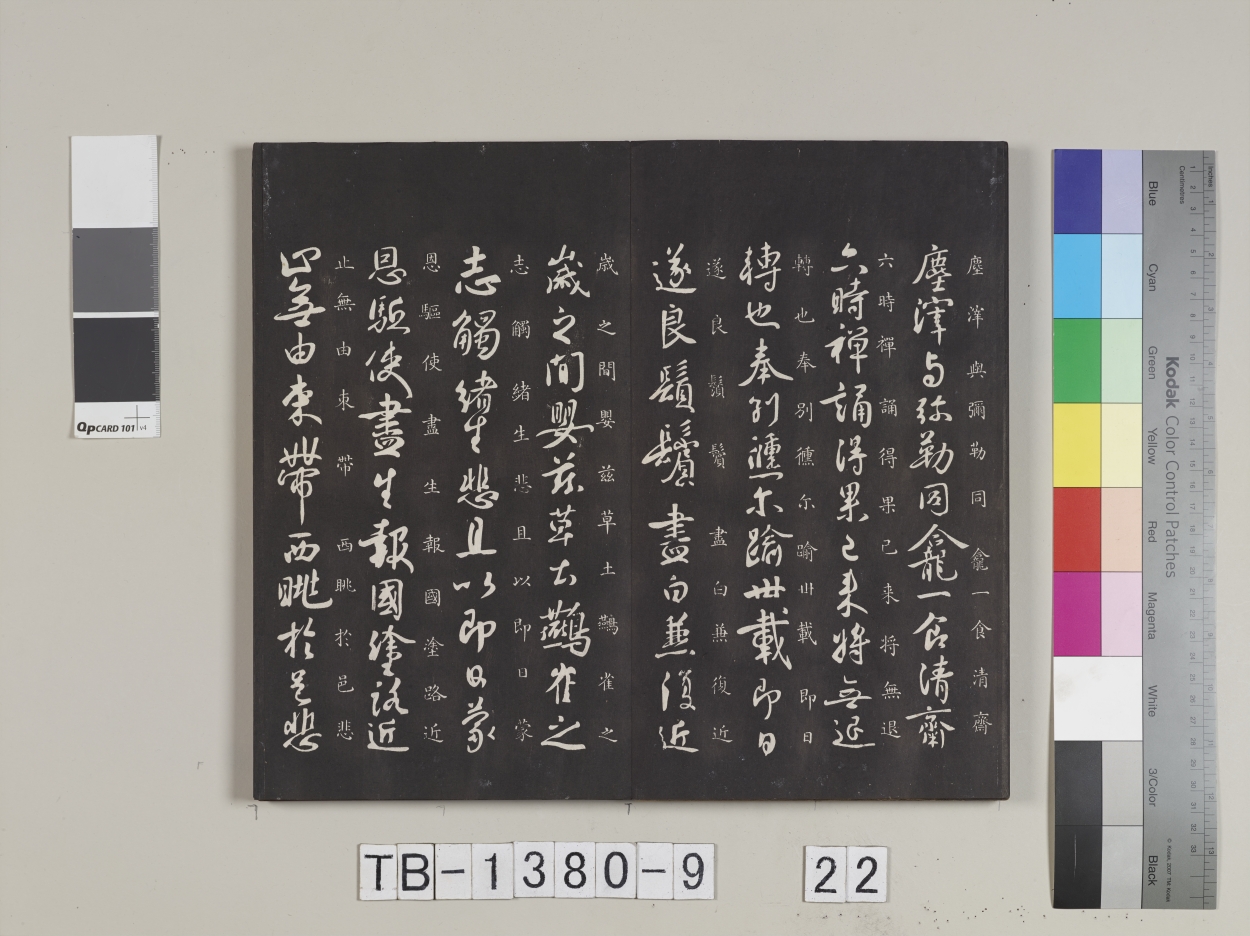 塵滓与弥勒同龕一食清齋
塵滓與彌勒同龕一食清齋
六時禅誦得果已来將無退
六時禪誦得果已来将無退
轉也奉別尓踰丗載即日
轉也奉別尓踰丗載即日
遂良鬚鬢盡白兼復近
遂良鬚鬢盡白兼復近
歲之間嬰茲草土鷰雀之
歳之間嬰兹草土鷰雀之
志觸緒生悲且以即日蒙
志觸緒生悲且以即日蒙
恩驅使盡生報國塗路近
恩驅使盡生報國塗路近
止無由束帶西眺於邑悲
止無由束帶西眺於邑悲
QPCARD 101 v4
Kodak Color Control Patches
Blue
Cyan
Green
Yellow
Red
Magenta
White
3/Color
Black
Inches
Centimetres
© Kodak, 2007 TM: Kodak
TB-1380-9 22